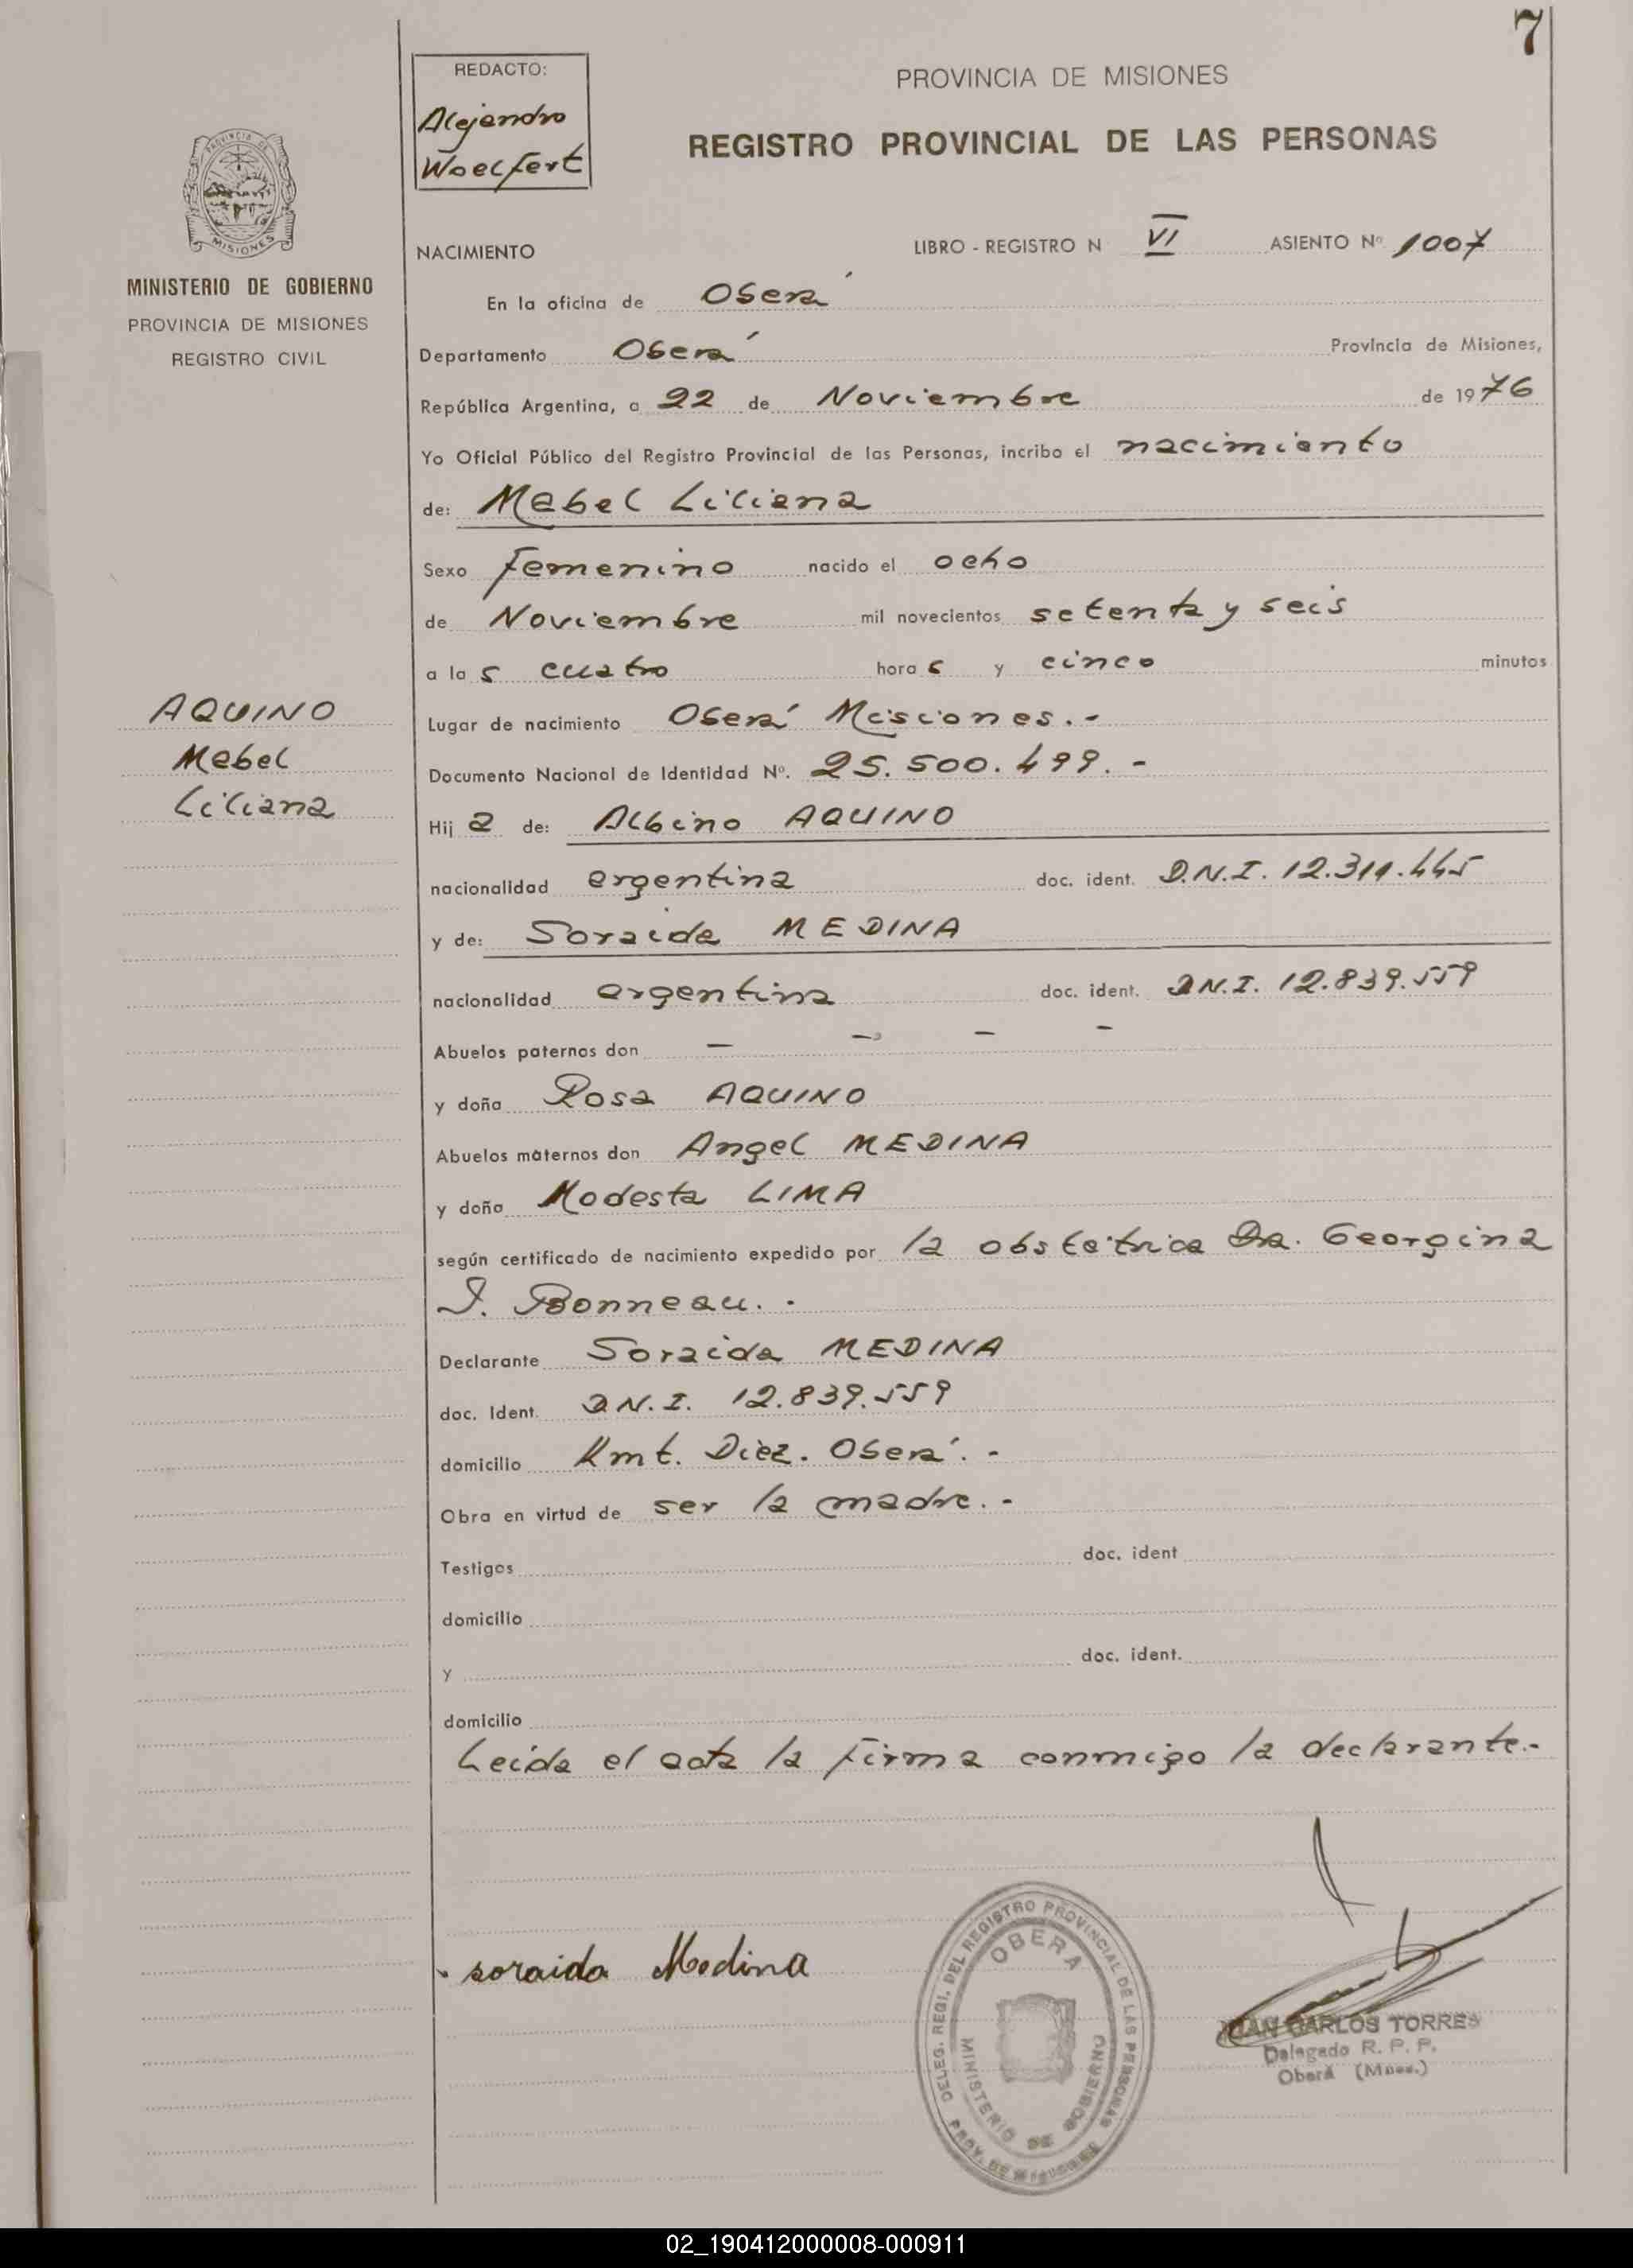 7
REDACTO:
Alejandro
Woelfert
PROVINCIA DE MISIONES
REGISTRO PROVINCIAL DE LAS PERSONAS
PROVINCIA DE
MISIONES
MINISTERIO DE GOBIERNO
PROVINCIA DE MISIONES
REGISTRO CIVIL
NACIMIENTO LIBRO - REGISTRO N VI ASIENTO Nº 1007
En la oficina de Oberá
Departamento Oberá Provincia de Misiones,
República Argentina, a 22 de Noviembre de 1976
Yo Oficial Público del Registro Provincial de las Personas, incribo el nacimiento
de: Mabel Liliana
Sexo Femenino nacido el ocho
de Noviembre mil novecientos setenta y seis
a la s cuatro hora s y cinco minutos
AQUINO
Mabel
Liliana
Lugar de nacimiento Oberá Misiones.-
Documento Nacional de Identidad Nº. 25.500.499.-
Hij a de: Albino AQUINO
nacionalidad argentina doc. ident. D.N.I. 12.311.445
y de: Soraida MEDINA
nacionalidad argentina doc. ident. D.N.I. 12.839.559
Abuelos paternos don — — — —
y doña Rosa AQUINO
Abuelos maternos don Angel MEDINA
y doña Modesta LIMA
según certificado de nacimiento expedido por la obstétrica Dra. Georgina
J. Bonneau.-
Declarante Soraida MEDINA
doc. Ident. D.N.I. 12.839.559
domicilio Kmt. Diez. Oberá.-
Obra en virtud de ser la madre.-
Testigos doc. ident
domicilio
y doc. ident.
domicilio
Leida el acta la firma conmigo la declarante.-
soraida Medina
DELEG. REGI. DEL REGISTRO PROVINCIAL DE LAS PERSONAS
OBERA
MINISTERIO DE GOBIERNO
PROV. DE MISIONES
JUAN CARLOS TORRES
Delegado R. P. P.
Oberá (Mnes.)
02_190412000008-000911